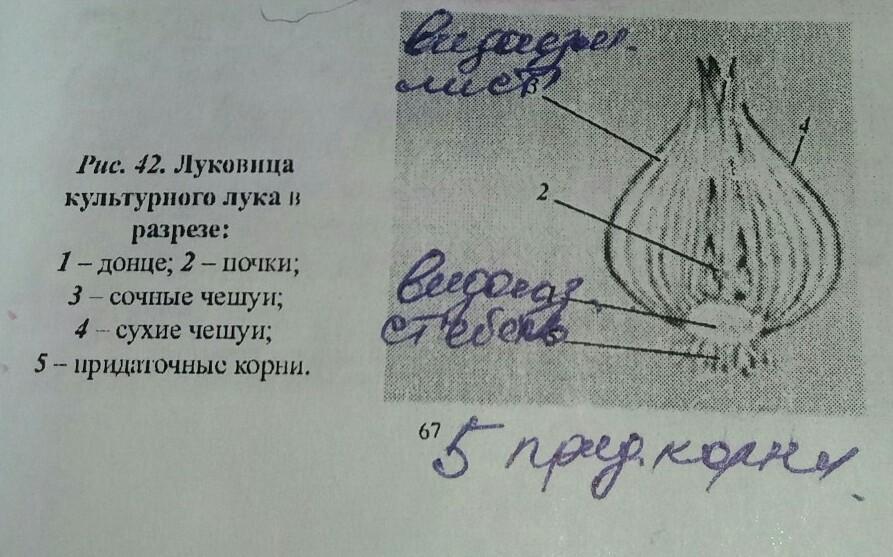 Рис. 42. Луковица
культурного лука в
разрезе:
1 – донце; 2 – почки;
3 – сочные чешуи;
4 – сухие чешуи;
5 – придаточные корни.
видоизм.
лист
3
4
2
видоиз.
стебель
67
5 прид. корни